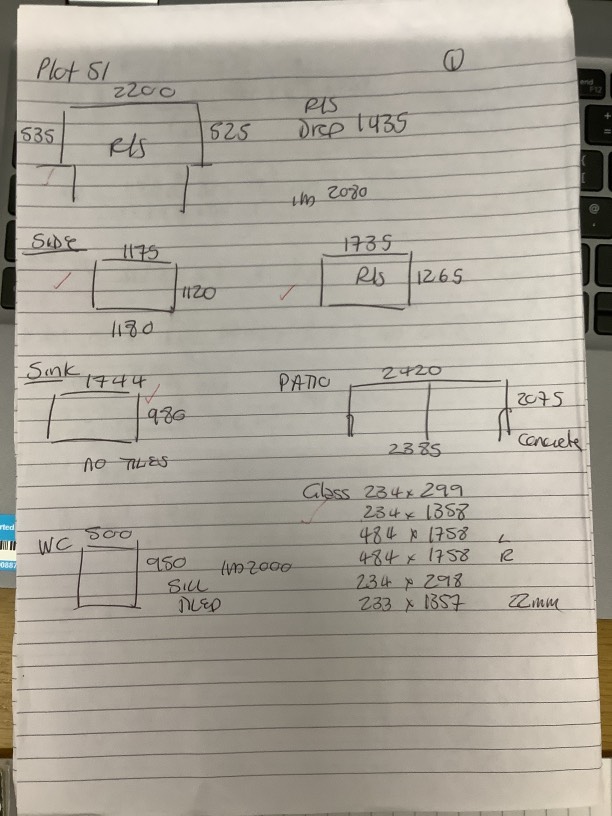 Plot 51
1
2200
535
R/S
525
R/S
Drop 1435
2080
SIDE
1175
1120
1180
1735
R/S
1265
Sink
1744
980
NO TILES
PATIO
2420
2075
Concrete
2385
Glass 234 x 299
234 x 1358
484 x 1758 L
484 x 1758 R
234 x 298
233 x 1357 22mm
WC
500
950
2000
SILL
TILED